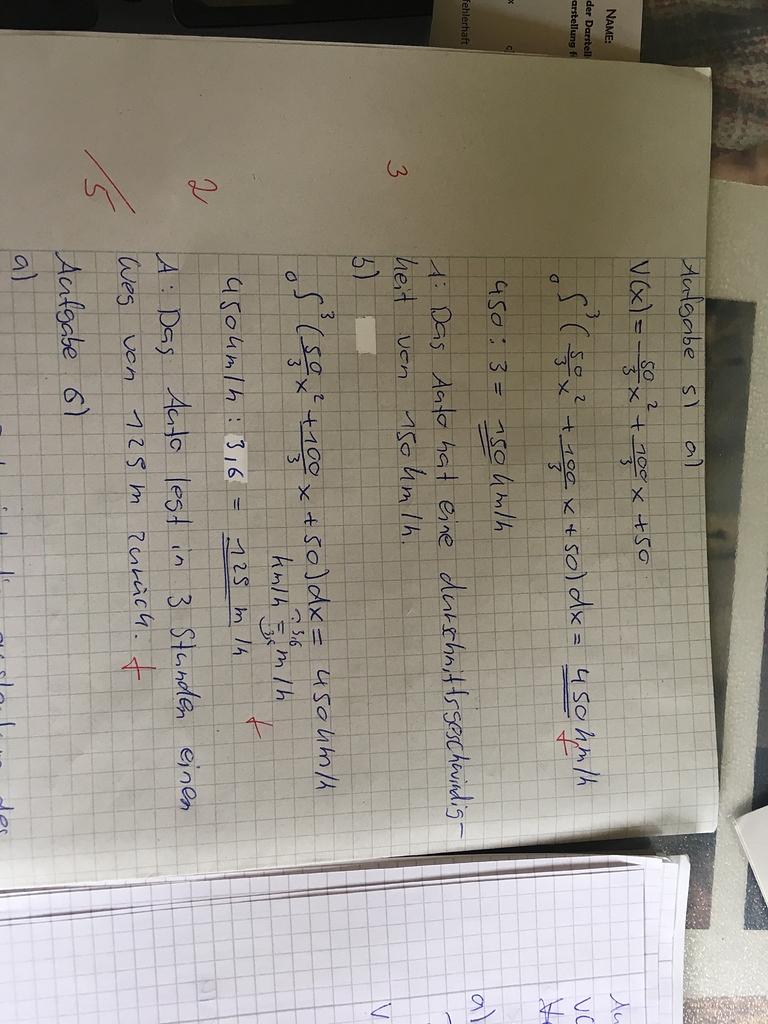 NAME:
Aufgabe 5) a)
V(x) = -50/3 x² + 100/3 x + 50
0∫3 (-50/3 x² + 100/3 x + 50) dx = 450 km/h +
450 : 3 = 150 km/h
3
A: Das Auto hat eine durchnittsgeschwindig-
keit von 150 km/h.
b)
0∫3 (-50/3 x² + 100/3 x + 50) dx = 450 km/h
km/h = m/h
450 km/h : 3,6 = 125 m/h +
2
A: Das Auto legt in 3 Stunden einen
Weg von 125 m zurück. +
/5
Aufgabe 6)
a)
a)
V